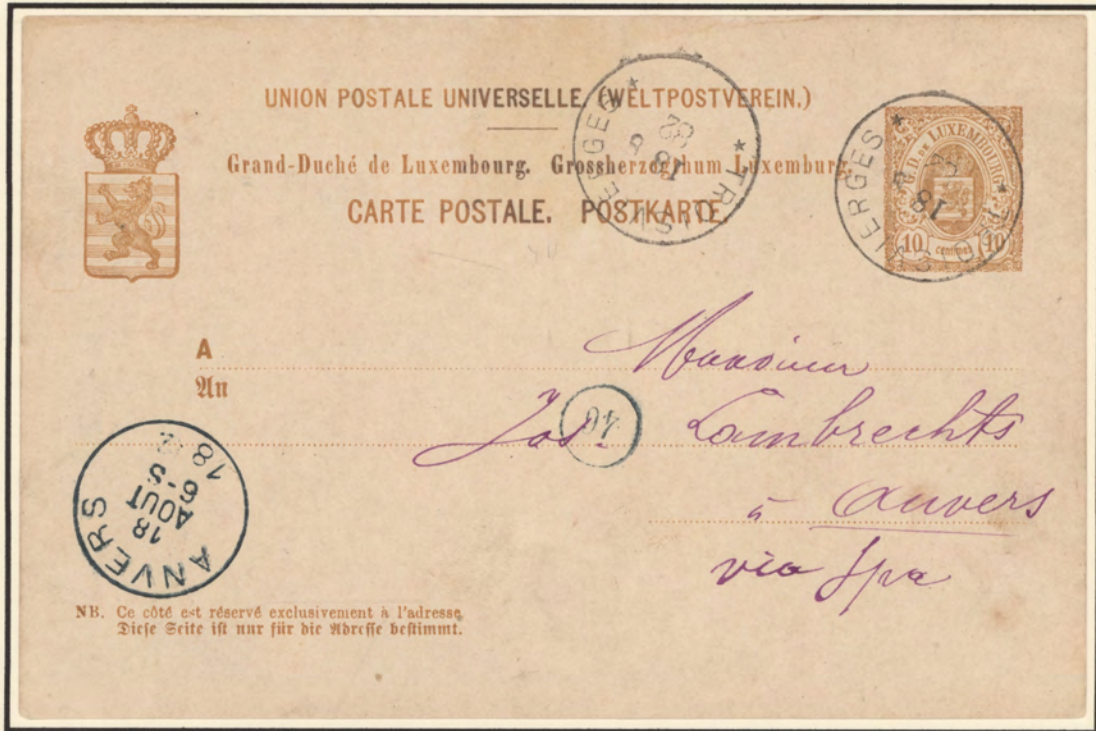 UNION POSTALE UNIVERSELLE. (WELTPOSTVEREIN.)
Grand-Duché de Luxembourg. Grossherzogthum Luxemburg.
CARTE POSTALE. POSTKARTE.
* TROISVIERGES *
18 8
82
* TROISVIERGES *
18 8
G.D. DE LUXEMBOURG
10 CENTIMES 10
A
An
Monsieur
Jos. Lambrechts
à Anvers
via Spa
40
ANVERS
18
AOUT
6-S
18
NB. Ce côté est réservé exclusivement à l'adresse.
Diese Seite ist nur für die Adresse bestimmt.